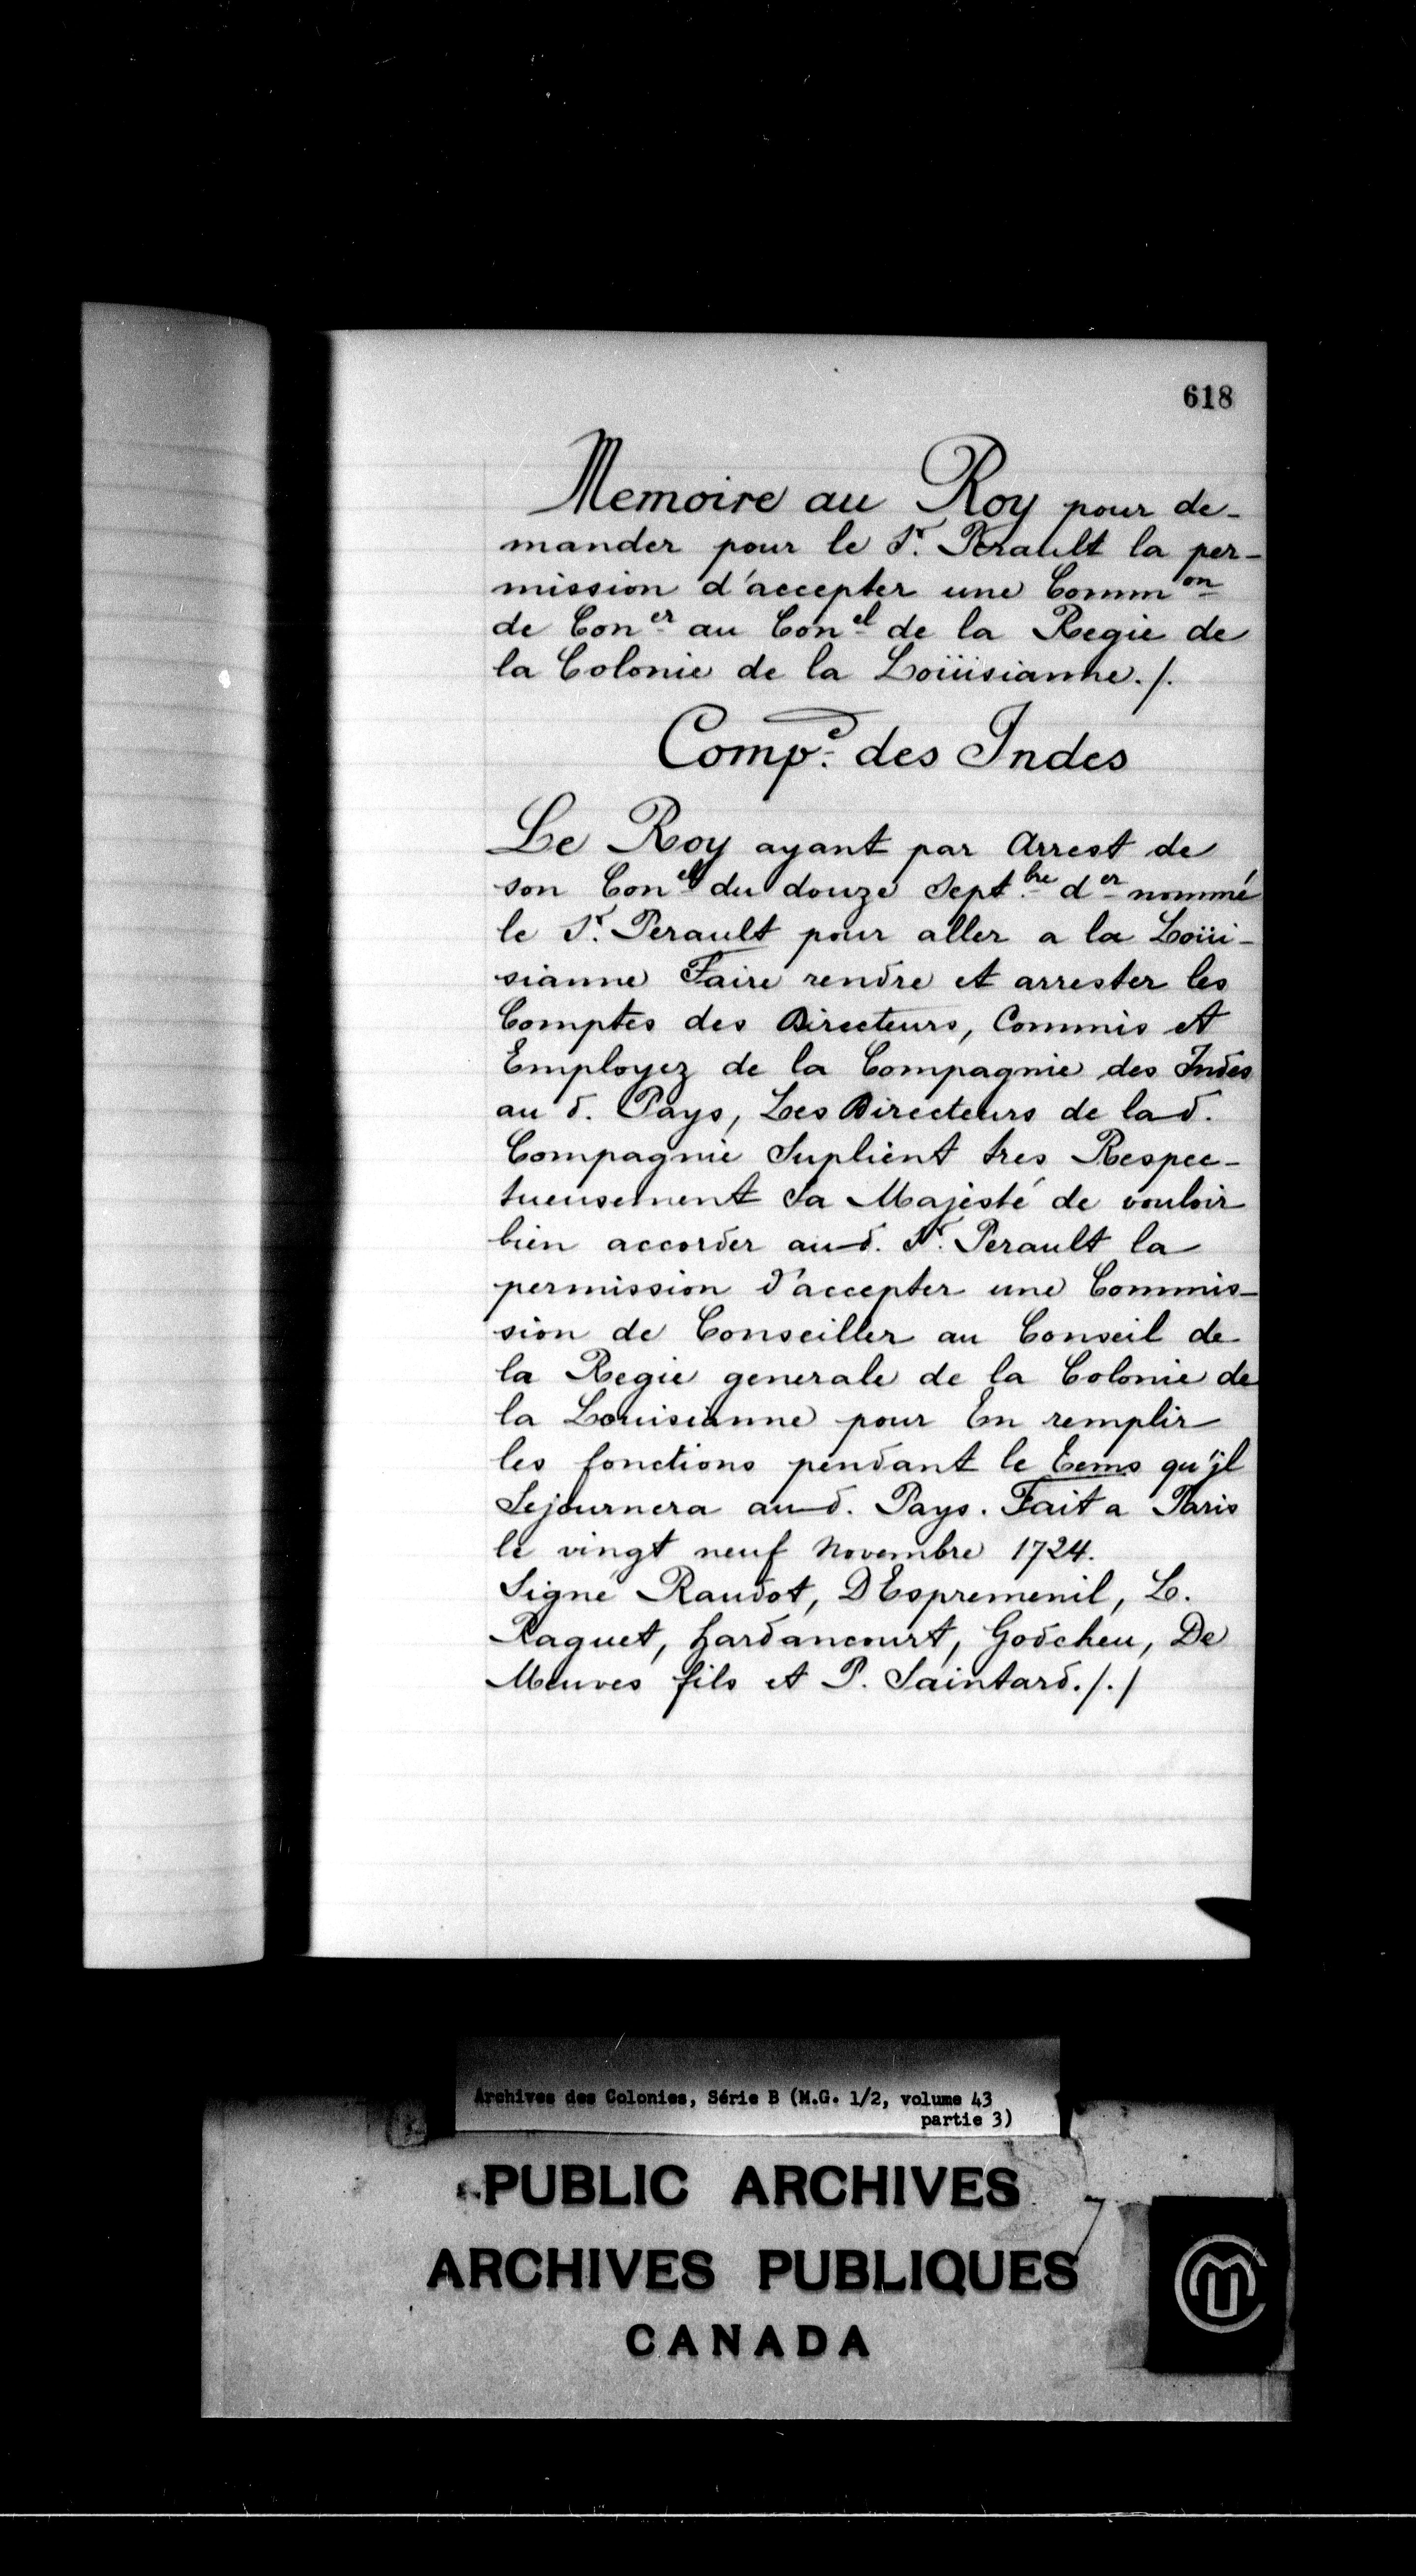 618
Memoire au Roy pour de-
mander pour le Sr. Perault la per-
mission d'accepter une Common
de Coner au Conel de la Regie de
la Colonie de la Loüisianne./.
Compe. des Indes
Le Roy ayant par Arrest de
son Conel du douze Septbre der nommé
le Sr. Perault pour aller a la Loüi-
sianne Faire rendre et arrester les
Comptes des Directeurs, Commis et
Employez de la Compagnie des Indes
au d. Pays, Les Directeurs de la d.
Compagnie Suplient tres Respec-
tueusement Sa Majesté de vouloir
bien accorder au d. Sr. Perault la
permission d'accepter une Commis-
sion de Conseiller au Conseil de
la Regie generale de la Colonie de
la Louisianne pour En remplir
les fonctions pendant le tems qu'jl
Sejournera au d. Pays. Fait a Paris
le vingt neuf Novembre 1724.
Signé Raudot, DEspremenil, L.
Raguet, hardancourt, Godeheu, De
Meuves fils et P. Saintard././
Archives des Colonies, Série B (M.G. 1/2, volume 43
partie 3)
PUBLIC ARCHIVES
ARCHIVES PUBLIQUES
CANADA